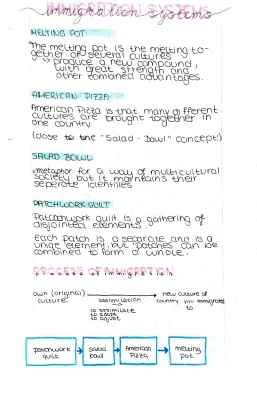 immigration systems
MELTING POT
The melting pot is the melting to-
gether of several cultures
↳ produce a new compound,
with great strength and
other combined advantages.
AMERICAN PIZZA
American Pizza is that many different
cultures are brought together in
one country.
(close to the "Salad-Bowl" concept)
SALAD BOWL
metaphor for a way of multicultural
society but it maintains their
seperate identities
PATCHWORK QUILT
Patchwork quilt is a gathering of
disjointed elements.
Each patch is a separate and is a
unige element, but patches can be
combined to form a whole.
PROCESS OF IMMIGRATION
own (original) → new culture of
culture assimilation country you immigrated
to
to assimilate
to adapt
to adjust
patchwork quilt → salad bowl → American Pizza → melting pot